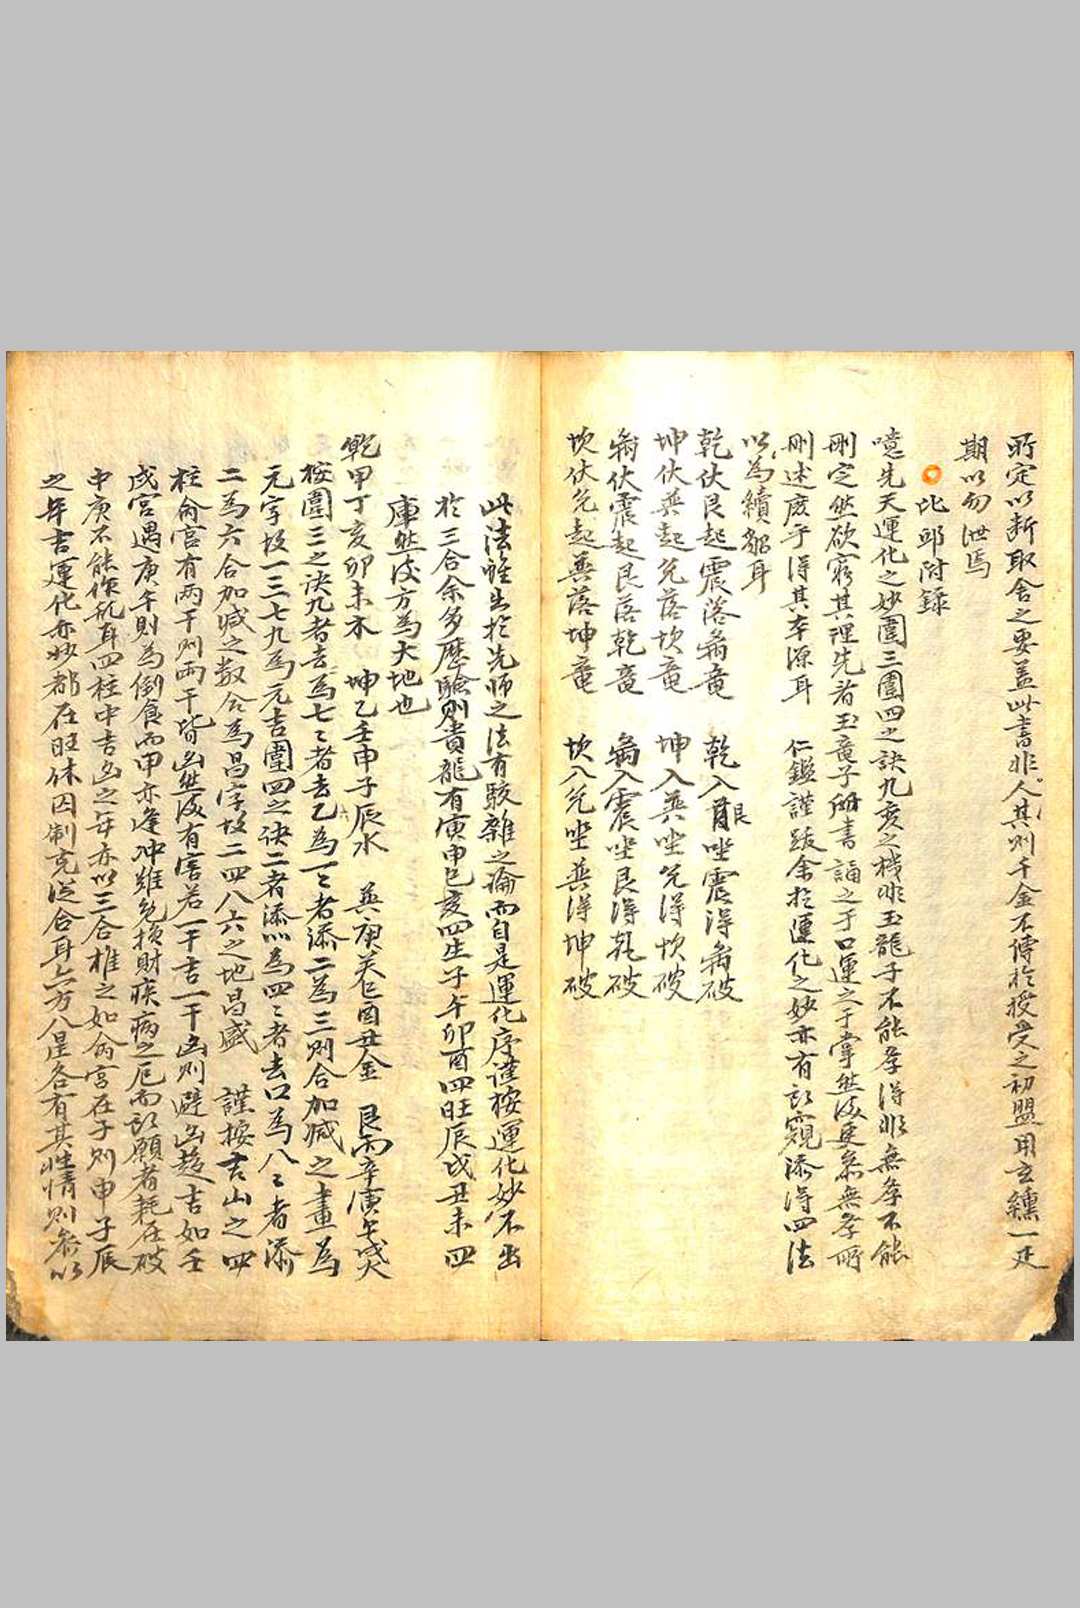 所定以斷取舍之要蓋此書非人其則千金不傳於授受之初盟用玄纁一疋
期以勿泄焉
比邱附錄
噫先天運化之妙圖三圖四之訣九变之機非玉龍子不能孝得非無孝不能
刪定然欲窮其理先看玉竜子册書誦之于口運之于掌然後更泰無孝所
刪述庶乎得其本源耳 仁鑑謹跋余於運化之妙亦有所窺添得四法
以為續貂耳
乾伏艮起震落巽竜 乾入艮坐震得巽破
坤伏㢲起兌落坎竜 坤入㢲坐兌得坎破
离伏震起艮落乾竜 离入震坐艮得乾破
坎伏兌起㢲落坤竜 坎入兌坐㢲得坤破
此法雖出於先師之法有駁雜之論而自是運化序謹按運化妙不出
於三合余多歷驗則貴龍有寅申巳亥四生子午卯酉四旺辰戌丑未四
庫然後方為大地也
乾甲丁亥卯未木 坤乙壬申子辰水 㢲庚癸巳酉丑金 艮丙辛寅午戌火
按圖三之訣九者去為七七者去乙為一一者添二為三則合加减之畫為
元字故一三七九為元吉圖四之訣二者添八為四四者去口為八八者添
二為六合加减之数合為昌字故二四八六之地昌盛 謹按吉山之四
柱命宮有兩干則兩干皆凶然後有害若一干吉一干凶則避凶趍吉如壬
戌宮遇庚午則為倒食而甲亦逢冲雖免損財疾病之厄而所願者耗在破
中庚不能作乱耳四柱中吉凶之年亦以三合推之如命宮在子則申子辰
之年吉運化亦妙都在旺休囚制克從合耳六方八星各有其性情則參以